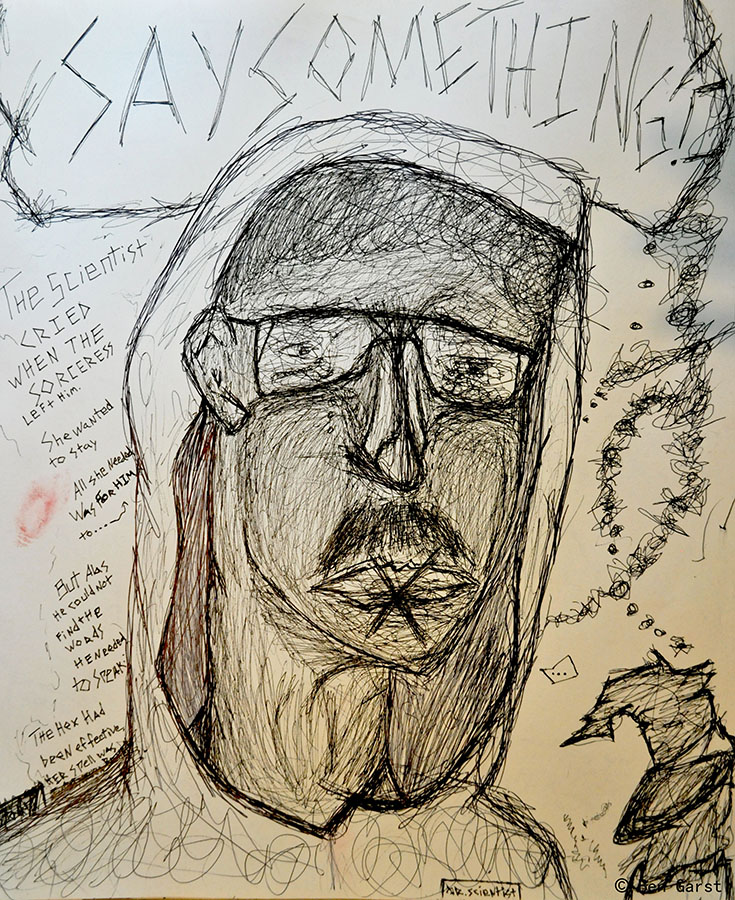 SAY SOMETHING!?
The Scientist
CRIED
WHEN THE
SORCERESS
Left Him.
She wanted
to stay
All she Needed
Was FOR HIM
to.....
BUt Alas
He could Not
FIND tHE
WORDS
HE Needed
to SPEAK
THE HEX HAD
been effective,
HER spell was
...
DR. SCIENTIST
© Ben Garst